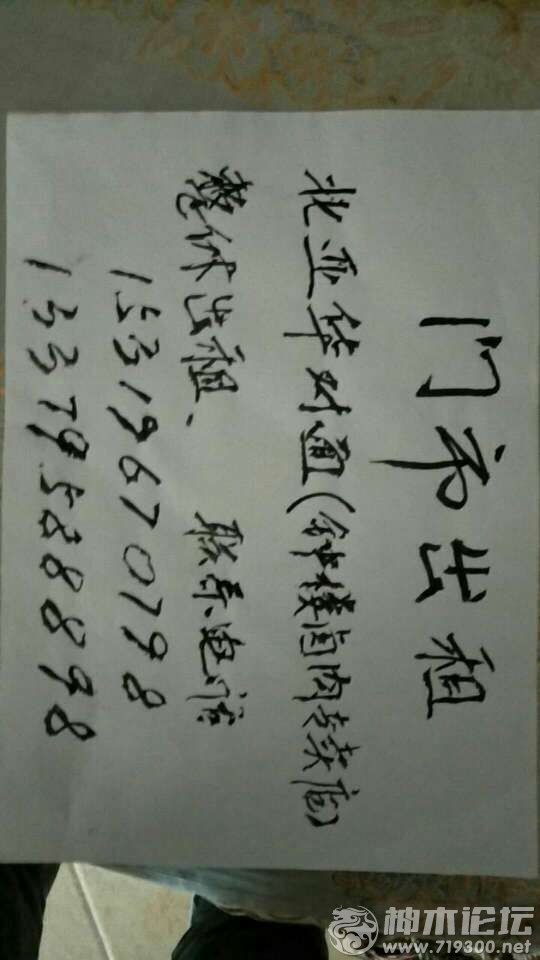 门市出租
北亚华对面(钟楼卤肉专卖店)
整体出租、联系电话
15319670798
13379588898
神木论坛
www.719300.net